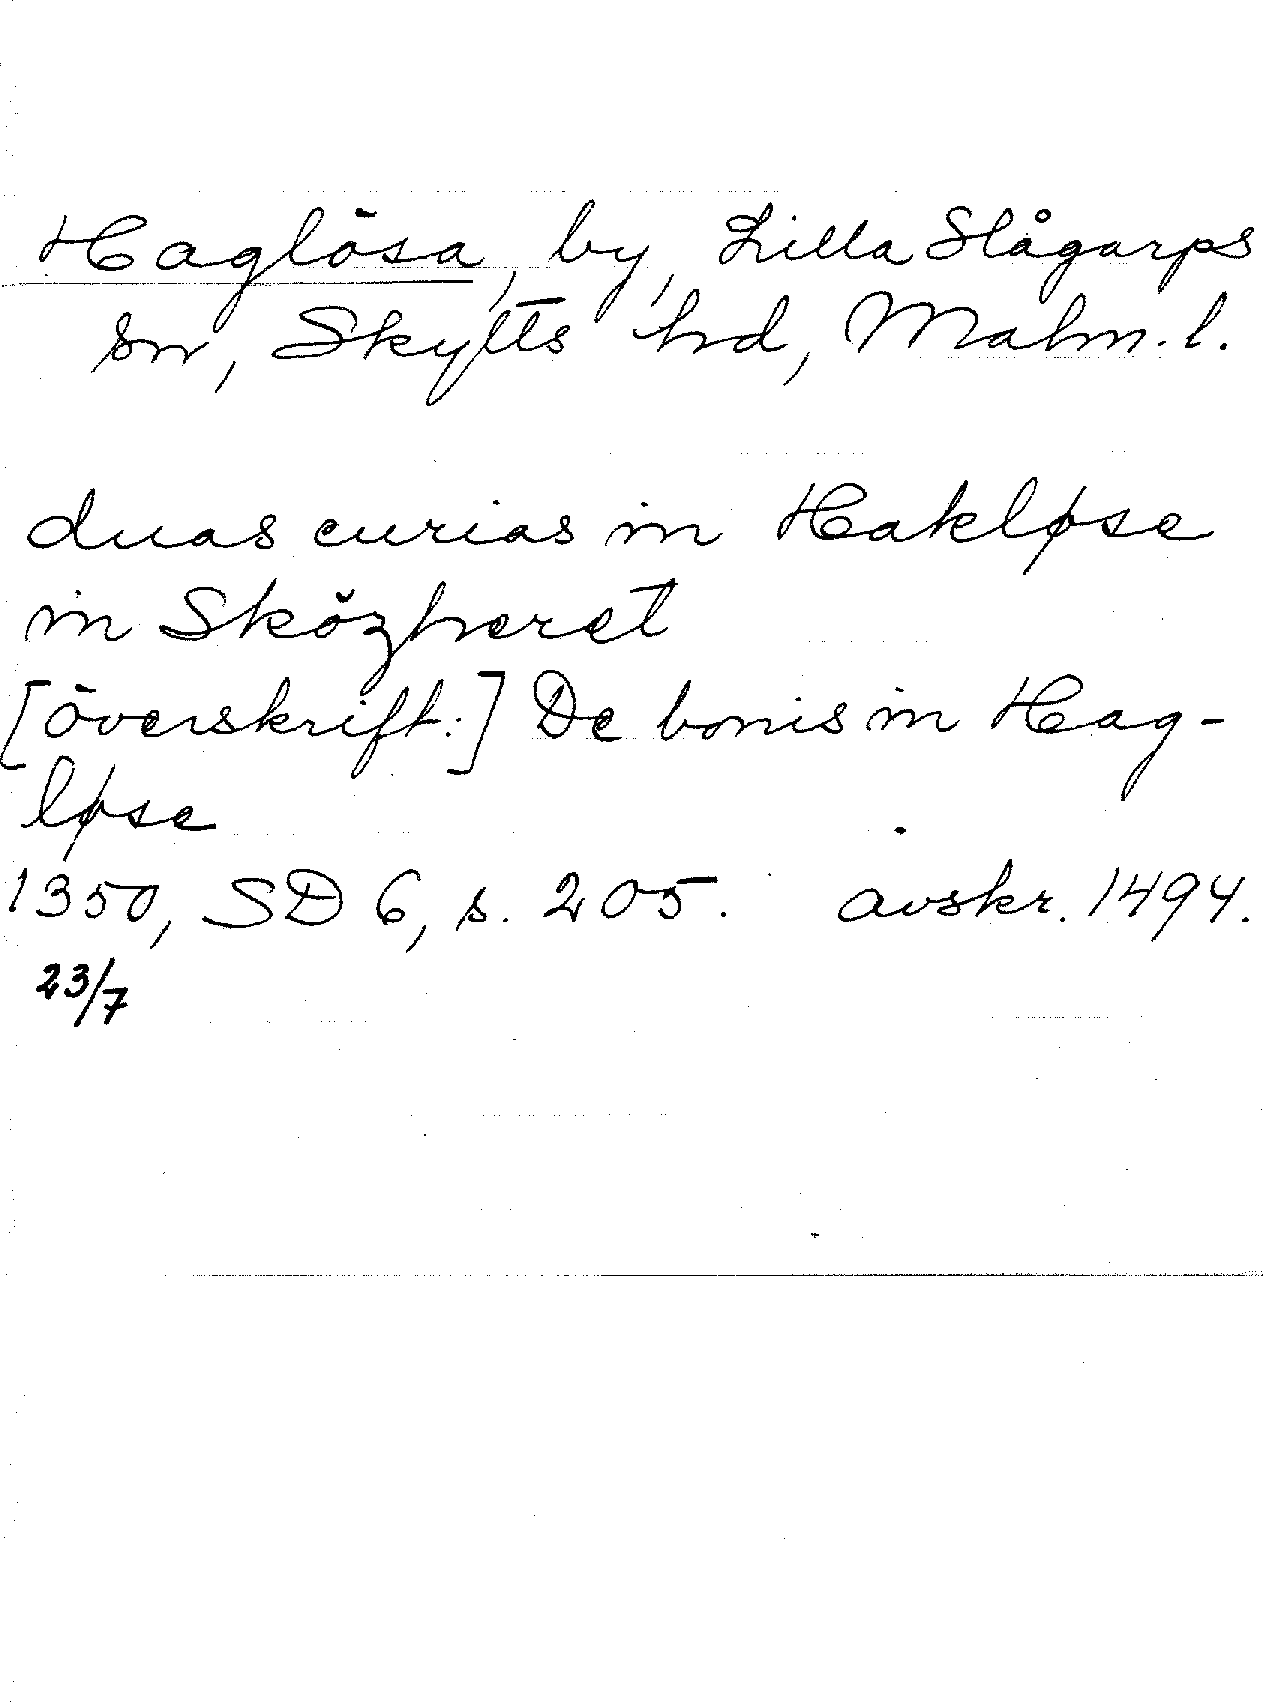 Haglösa, by, Lilla Slågarps
sn, Skytts hd, Malm. l.
duas curias in Hakløse
in Sközheret
[överskrift:] De bonis in Hag-
løse
1350, SD 6, s. 205. avskr. 1494.
23/7